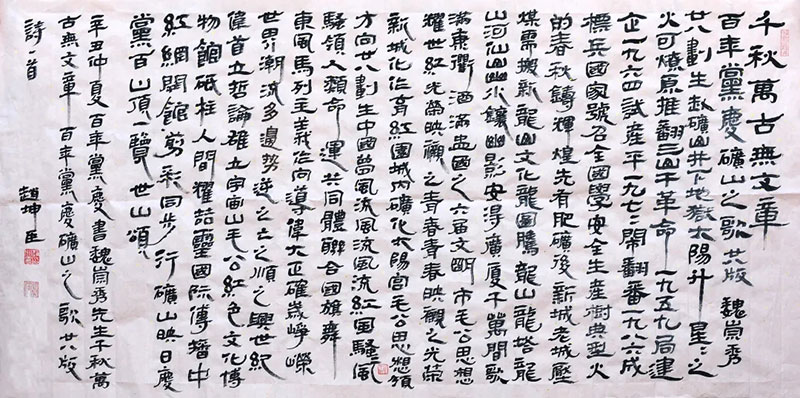 千秋萬古無文章
百年黨慶礦山之歌 廿八版 魏崇秀
廿八劃生赴礦山井下地獄太陽升 星星之
火可燎原推翻三山千革命一九五九局建
企一九六四試産平一九七二鬧翻番一九八六成
標兵國家號召全國學安全生産樹典型火
的春秋鑄輝煌先有肥礦後新城老城壓
煤需搬新龍山文化龍圖騰龍山龍塔龍
山河仙山小鎮幽影安得廣厦千萬間歌
滿康衢酒滿盅國之六百文明市毛公思想
耀世紅光榮映觀之青春青春映觀之光榮
新城化作育紅園城内礦化太陽宮毛公思想領
方向廿八劃生中國夢風流風流紅國騷風
騷領人類命運共同體聯合國旗舞
東風馬列主義作向導偉大正確歲崢嶸
世界潮流多邊勢逆之亡之順之興世紀
偉首立哲論確立宇宙山毛公紅色文化傳
物館砥柱人間耀喆靈國際傳播中
紅網開館剪彩同步行礦山映日慶
黨百山頂一覽世山頌
辛丑仲夏百年黨慶書魏崇秀先生千秋萬
古無文章百年黨慶礦山之歌廿八版
詩一首
趙坤臣